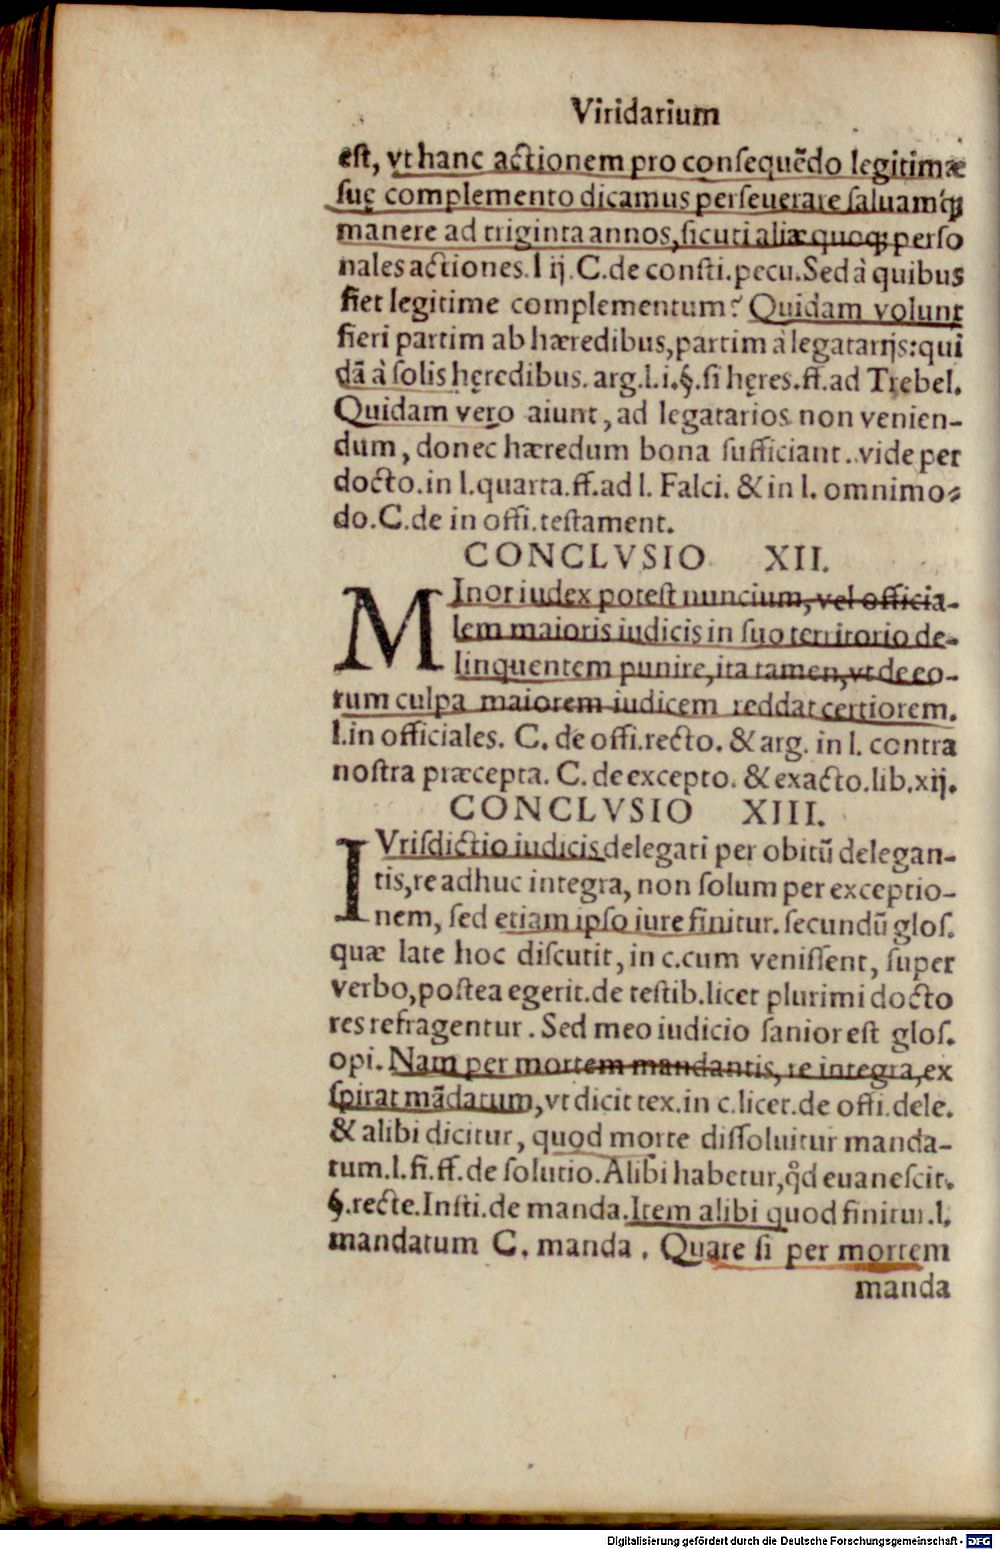 Viridarium
est, vt hanc actionem pro consequẽdo legitimæ
suę complemento dicamus perseuerare saluamq́ꝫ
manere ad triginta annos, sicuti aliæ quoqꝫ perso
nales actiones. l ij. C. de consti. pecu. Sed à quibus
fiet legitime complementum? Quidam volunt
fieri partim ab hæredibus, partim à legatarijs: qui
dã à solis hęredibus. arg. l. i. §. si hęres. ff. ad Trebel.
Quidam vero aiunt, ad legatarios non venien-
dum, donec hæredum bona sufficiant. vide per
docto. in l. quarta. ff. ad l. Falci. & in l. omnimo-
do. C. de in offi. testament.
CONCLVSIO XII.
MInor iudex potest nuncium, vel officia-
lem maioris iudicis in suo territorio de-
linquentem punire, ita tamen, vt de eo-
rum culpa maiorem iudicem reddat certiorem.
l. in officiales. C. de offi. recto. & arg. in l. contra
nostra præcepta. C. de excepto. & exacto. lib. xij.
CONCLVSIO XIII.
IVrisdictio iudicis delegati per obitũ delegan-
tis, re adhuc integra, non solum per exceptio-
nem, sed etiam ipso iure finitur. secundũ glos.
quæ late hoc discutit, in c. cum venissent, super
verbo, postea egerit. de testib. licet plurimi docto
res refragentur. Sed meo iudicio sanior est glos.
opi. Nam per mortem mandantis, re integra, ex
spirat mãdatum, vt dicit tex. in c. licet. de offi. dele.
& alibi dicitur, quod morte dissoluitur manda-
tum. l. fi. ff. de solutio. Alibi habetur, q̊d euanescit.
§. recte. Insti. de manda. Item alibi quod finitur. l.
mandatum C. manda. Quare si per mortem
manda
Digitalisierung gefördert durch die Deutsche Forschungsgemeinschaft - DFG